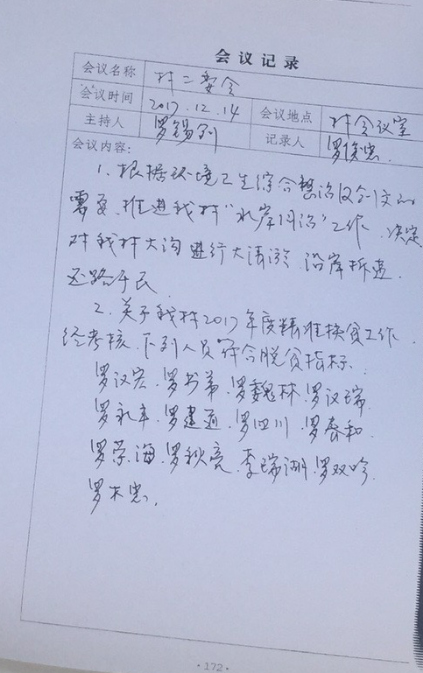 会议记录
会议名称 村二委会
会议时间 2017.12.14 会议地点 村会议室
主持人 罗锡列 记录人 罗俊忠
会议内容:
1、根据环境卫生综合整治及全文的
需要,推进我村“水岸同治”工作,决定
对我村大沟进行大清淤,沿岸拆违,
还路于民
2、关于我村2017年度精准扶贫工作,
经考核,下列人员符合脱贫指标:
罗汉宏、罗书弟、罗魏林、罗汉瑞
罗永丰、罗建道、罗四川、罗春和
罗荣海、罗秋亮、李瑞湖、罗双吟
罗木忠.
·172·